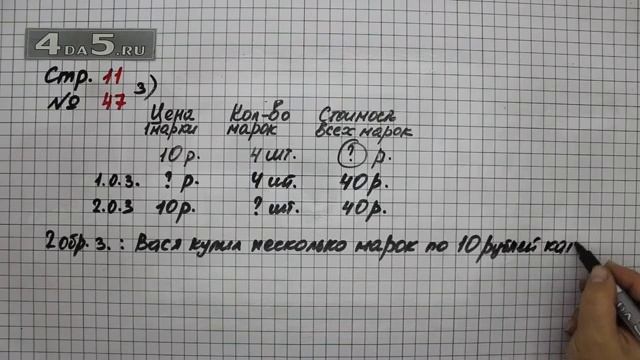 4DA5.RU
Стр. 11
№ 47 3)
Цена Кол-во Стоимость
1 марки марок всех марок
10 р. 4 шт. ? р.
1.О.З. ? р. 4 шт. 40 р.
2.О.З 10 р. ? шт. 40 р.
2 обр. з. : Вася купил несколько марок по 10 рублей каж